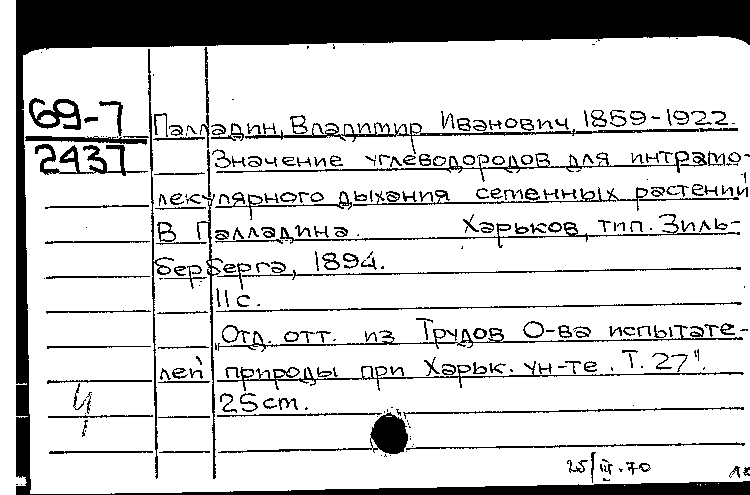 69-7
2437
Палладин, Владимир Иванович, 1859-1922.
Значение углеводородов для интрамо-
лекулярного дыхания семенных растений
В Палладина. Харьков, тип. Зиль-
берберга, 1894.
11 с.
"Отд. отт. из Трудов О-ва испытате-
лей природы при Харьк. ун-те. Т. 27".
25 cm.
25/III.70